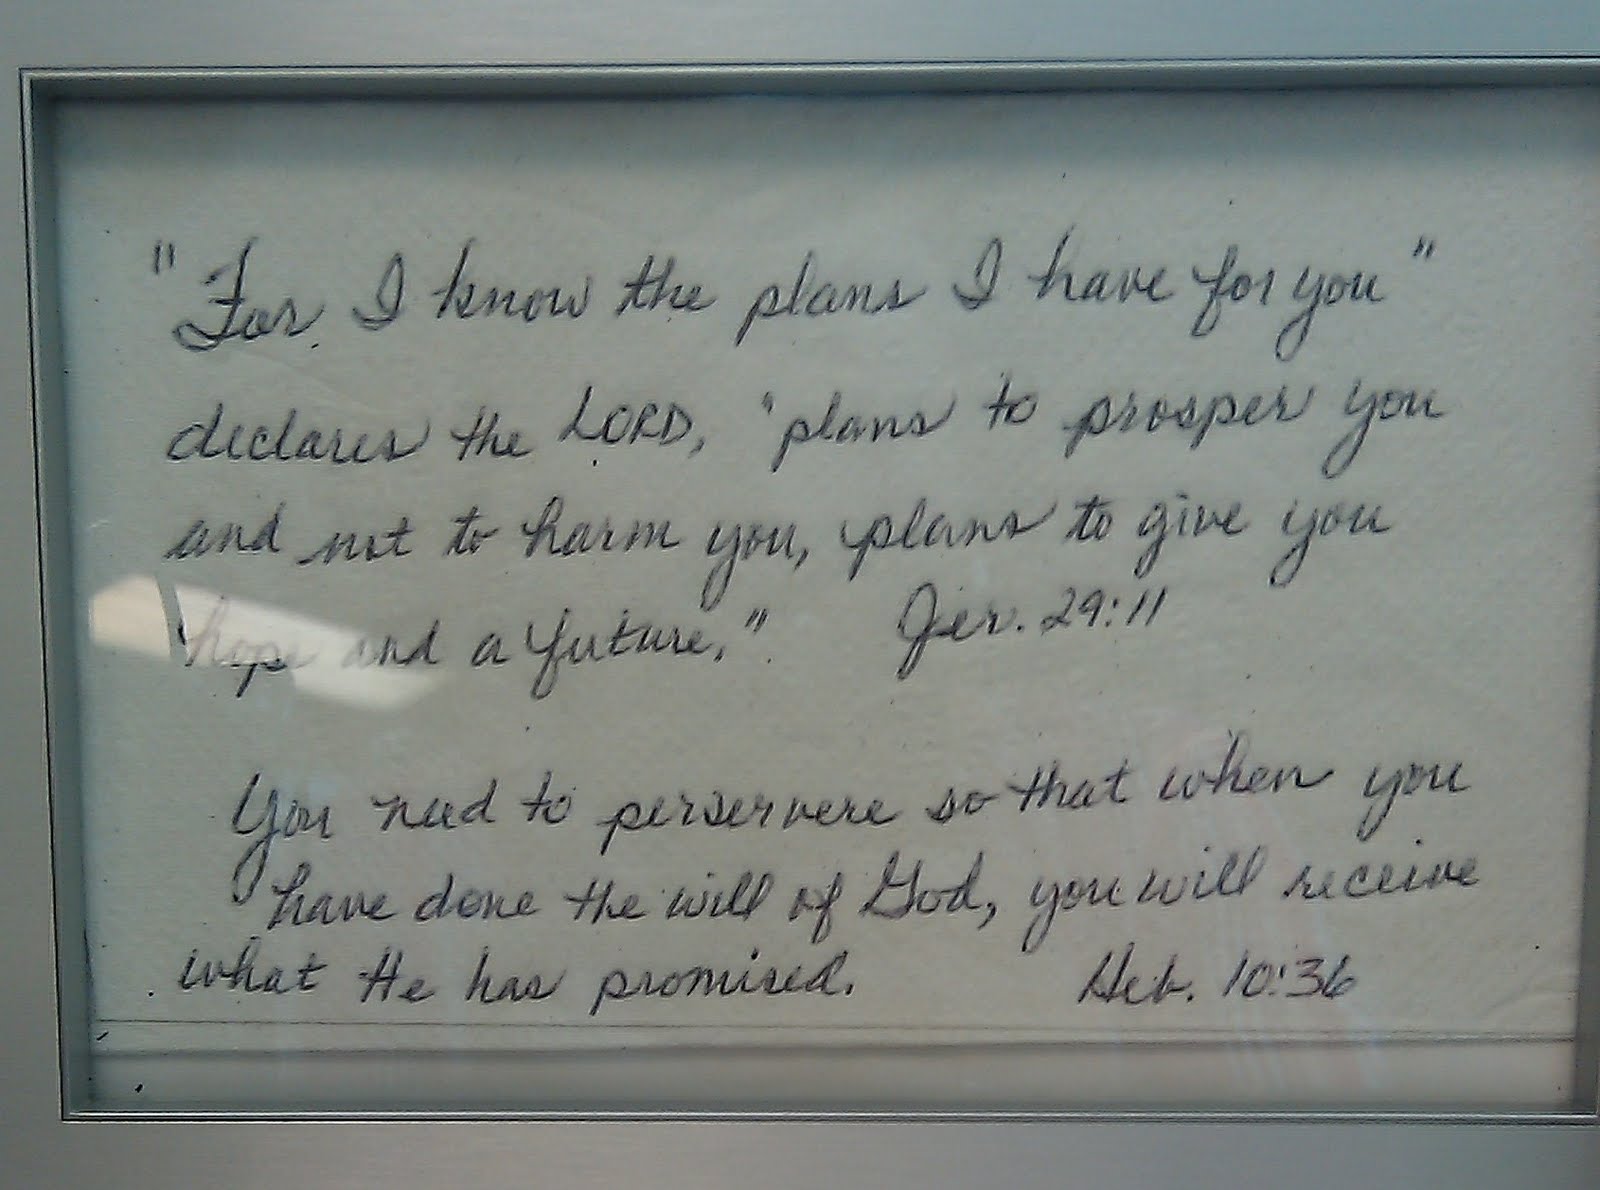 "For I know the plans I have for you"
declares the LORD, "plans to prosper you
and not to harm you, plans to give you
hope and a future." Jer. 29:11
You need to perservere so that when you
have done the will of God, you will receive
what He has promised. Heb. 10:36